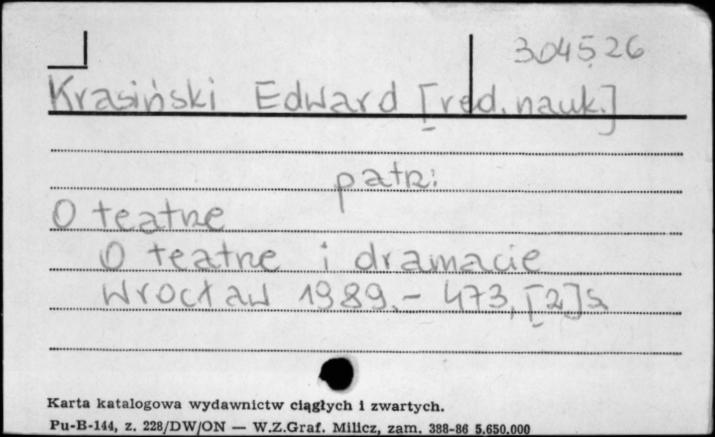 304526
Krasiński Edward [red. nauk.]
patrz:
O teatrze
O teatrze i dramacie
Wrocław 1989.- 473, [2]s
Karta katalogowa wydawnictw ciągłych i zwartych.
Pu-B-144, z. 228/DW/ON — W.Z.Graf. Milicz, zam. 388-86 5.650.000